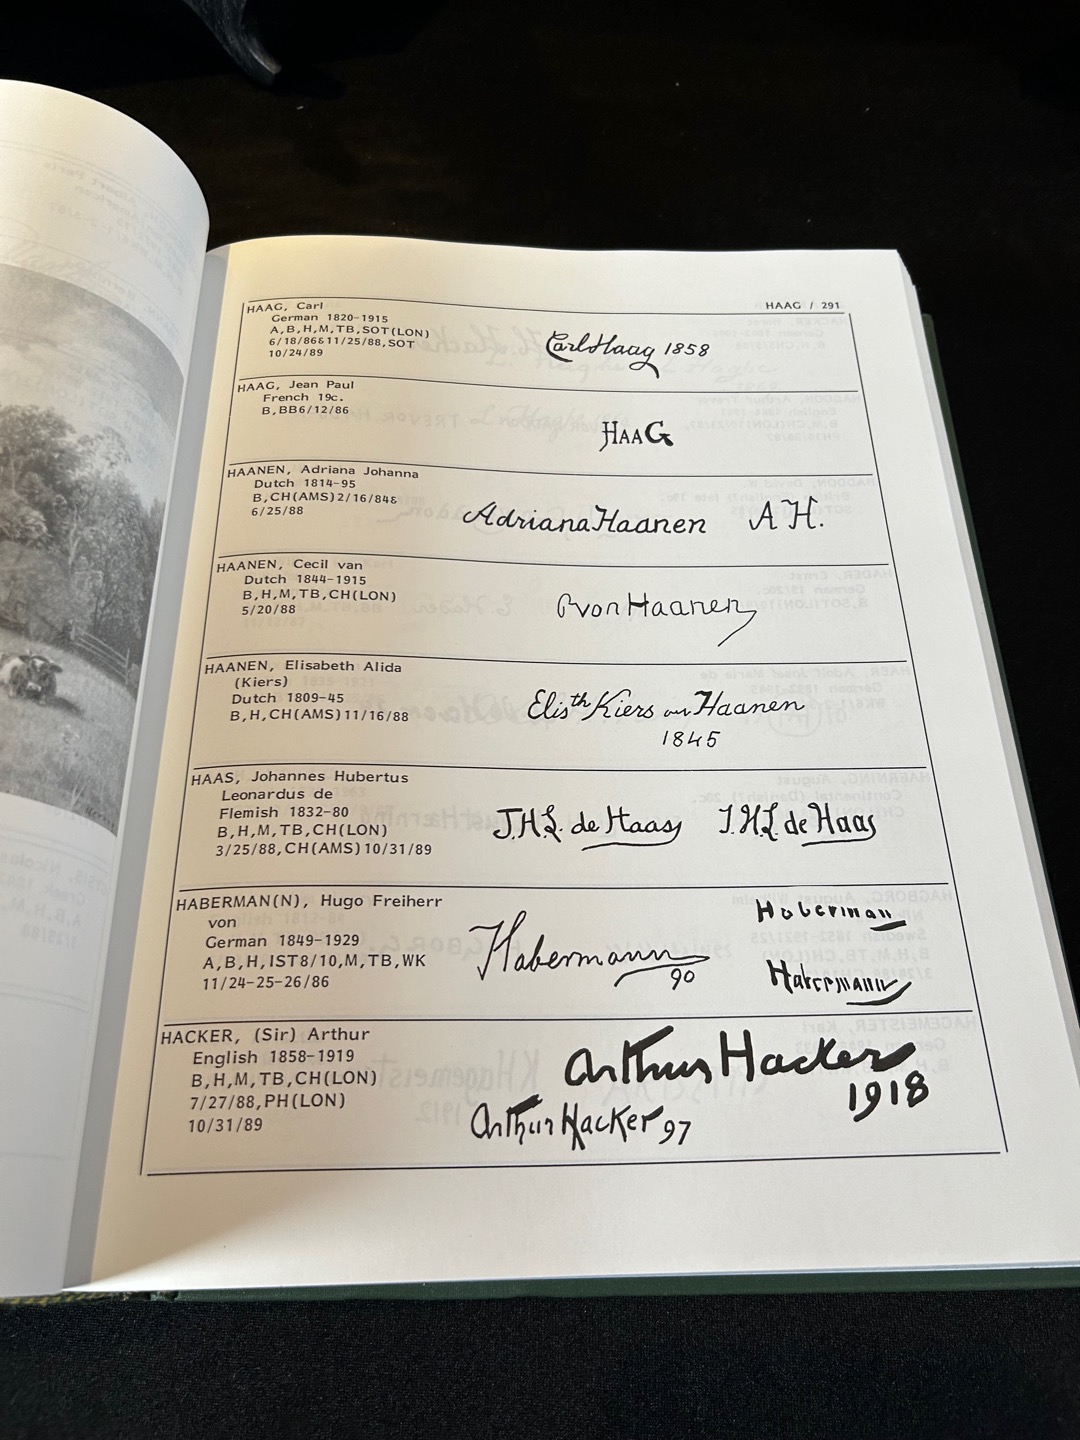 HAAG / 291
HAAG, Carl
German 1820-1915
A,B,H,M,TB,SOT(LON)
6/18/86&11/25/88,SOT
10/24/89
Carl Haag 1858
HAAG, Jean Paul
French 19c.
B,BB6/12/86
HAAG
HAANEN, Adriana Johanna
Dutch 1814-95
B,CH(AMS)2/16/84&
6/25/88
Adriana Haanen A.H.
HAANEN, Cecil van
Dutch 1844-1915
B,H,M,TB,CH(LON)
5/20/88
van Haanen
HAANEN, Elisabeth Alida
(Kiers)
Dutch 1809-45
B,H,CH(AMS)11/16/88
Elisth Kiers van Haanen
1845
HAAS, Johannes Hubertus
Leonardus de
Flemish 1832-80
B,H,M,TB,CH(LON)
3/25/88,CH(AMS)10/31/89
J.H.L. de Haas J.H.L. de Haas
HABERMAN(N), Hugo Freiherr
von
German 1849-1929
A,B,H,IST8/10,M,TB,WK
11/24-25-26/86
Habermann
90
Habermann
Habermann
HACKER, (Sir) Arthur
English 1858-1919
B,H,M,TB,CH(LON)
7/27/88,PH(LON)
10/31/89
Arthur Hacker
1918
Arthur Hacker 97